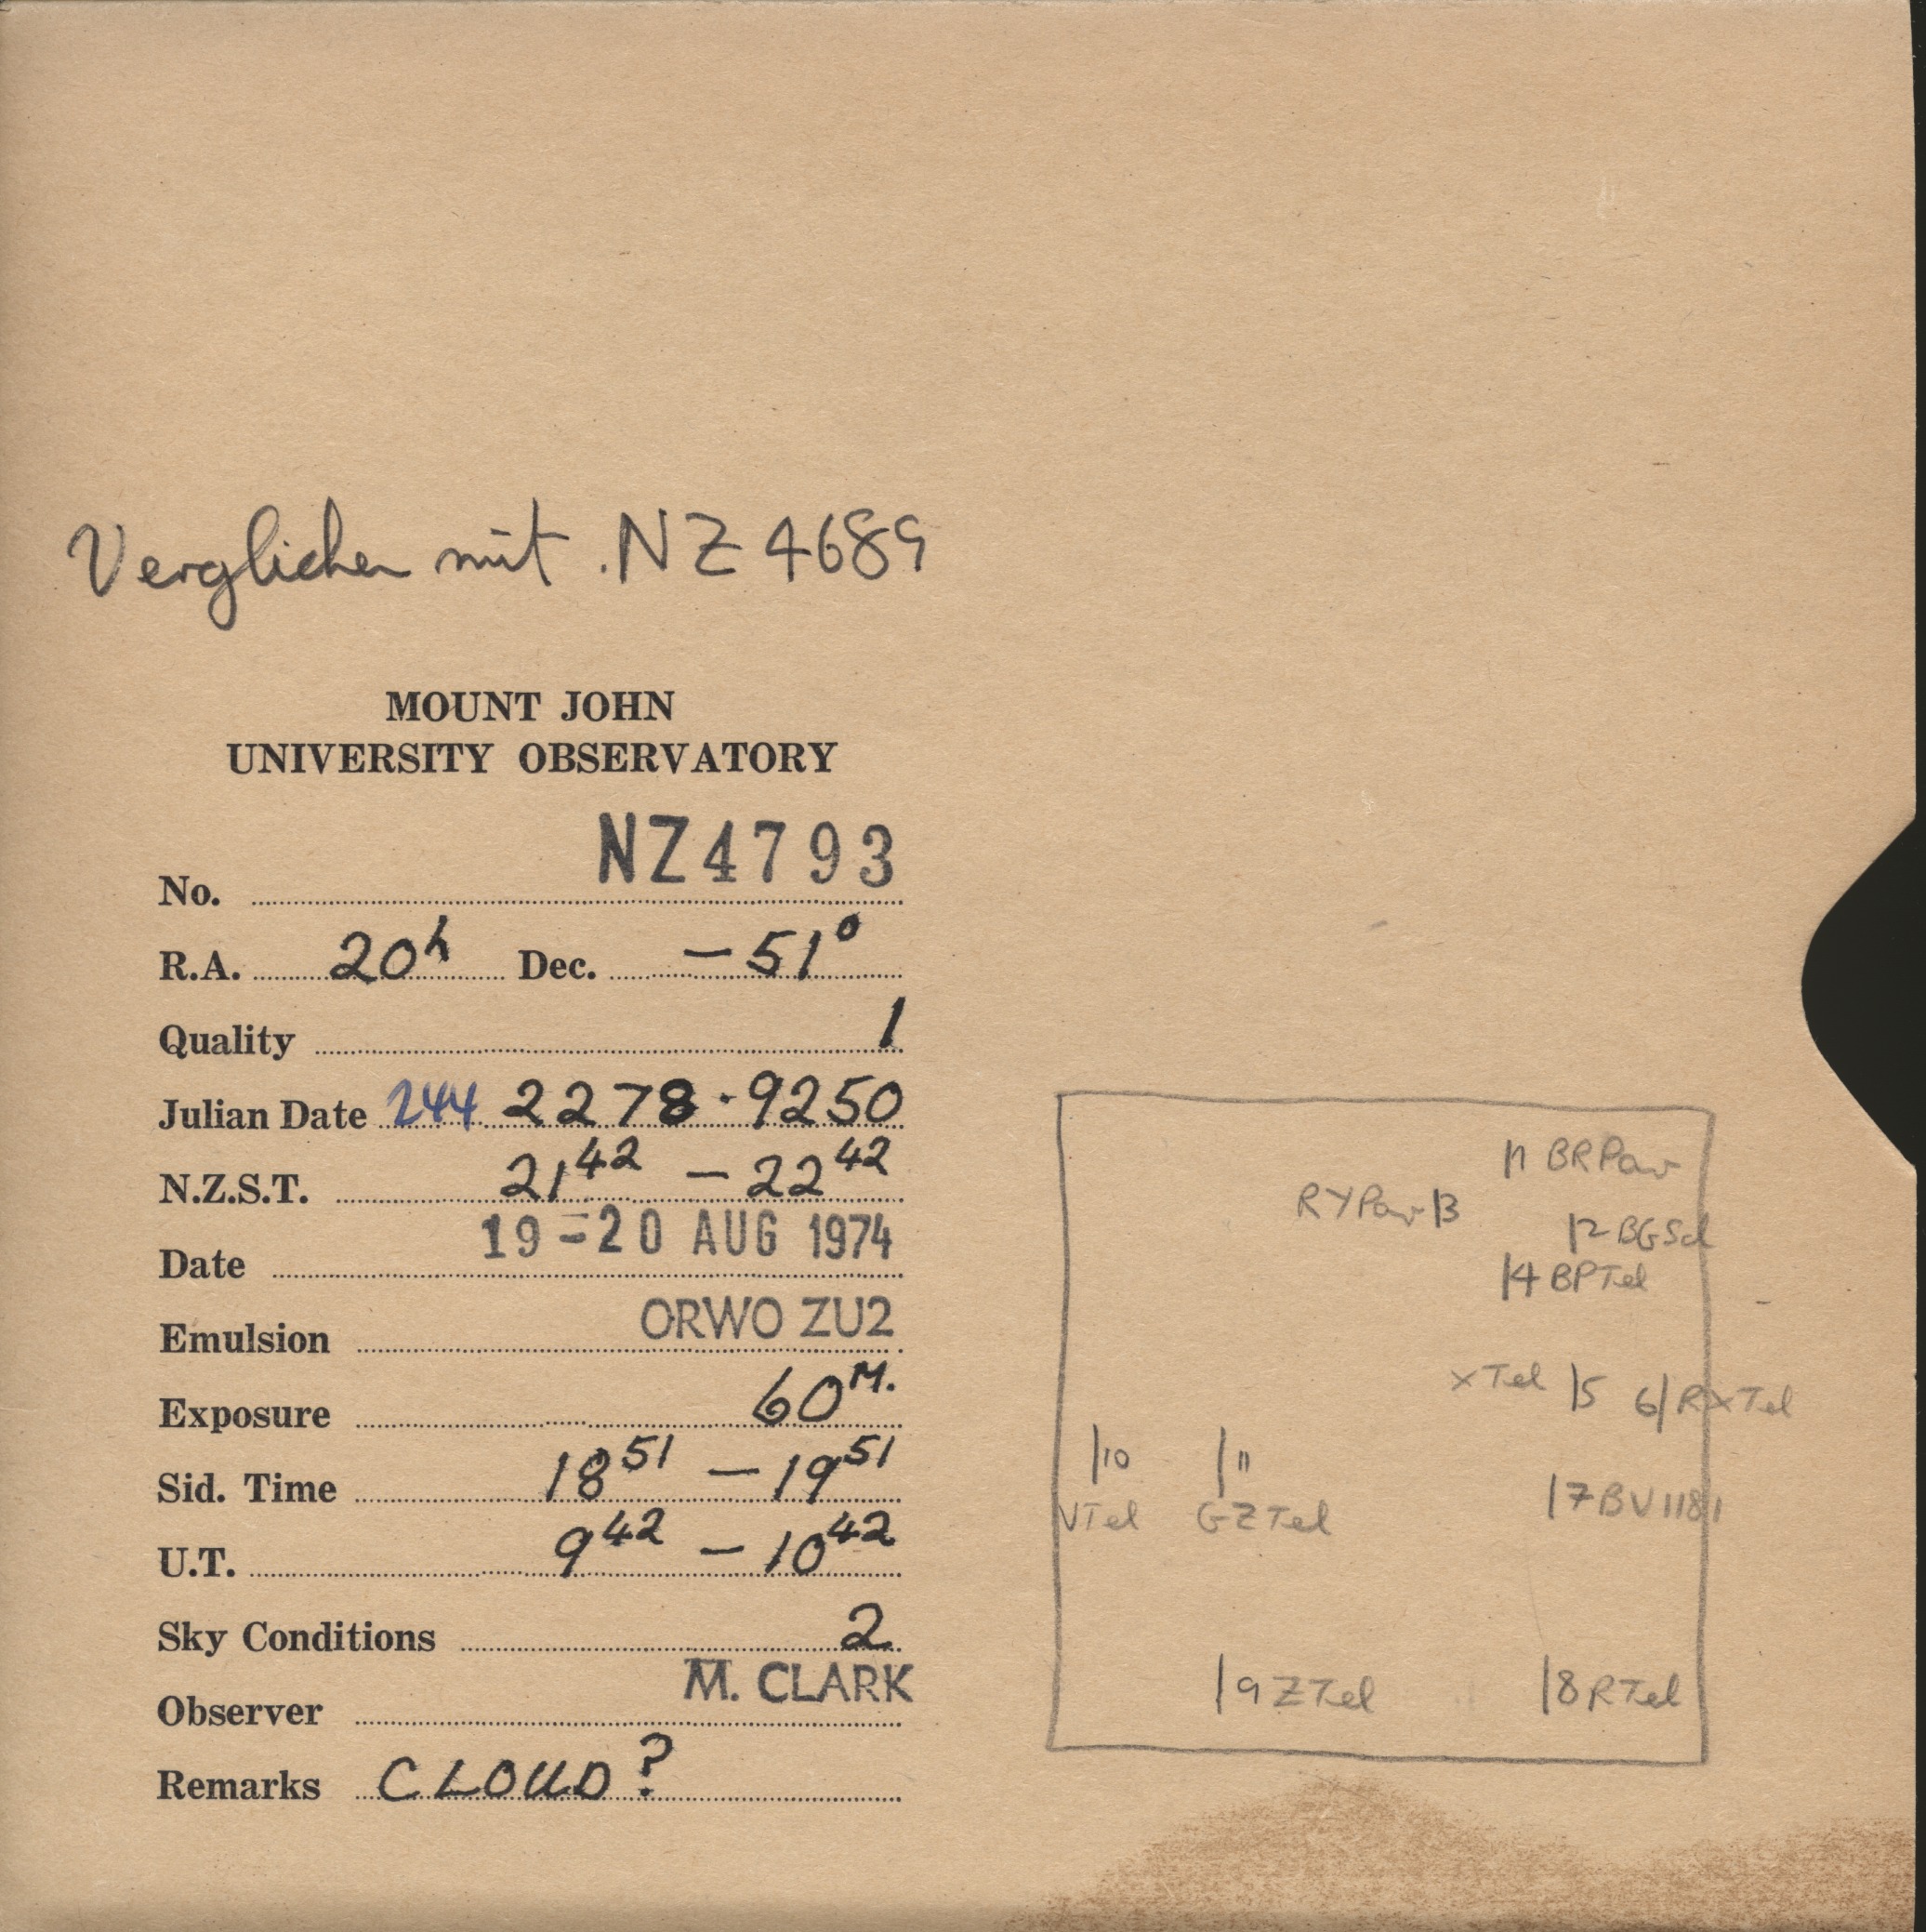 Verglichen mit NZ 4689
MOUNT JOHN
UNIVERSITY OBSERVATORY
No. NZ4793
R.A. 20h Dec. -51°
Quality 1
Julian Date 244 2278.9250
N.Z.S.T. 21 42 - 22 42
Date 19-20 AUG 1974
Emulsion ORWO ZU2
Exposure 60 M.
Sid. Time 18 51 - 19 51
U.T. 9 42 - 10 42
Sky Conditions 2
Observer M. CLARK
Remarks CLOUD?
|1 BRPav
RYPav |3
|2 BGScl
|4 BPTel
XTel |5 6| RXTel
|10 |11
VTel GZTel
|7 BV1181
|9 ZTel |8 RTel